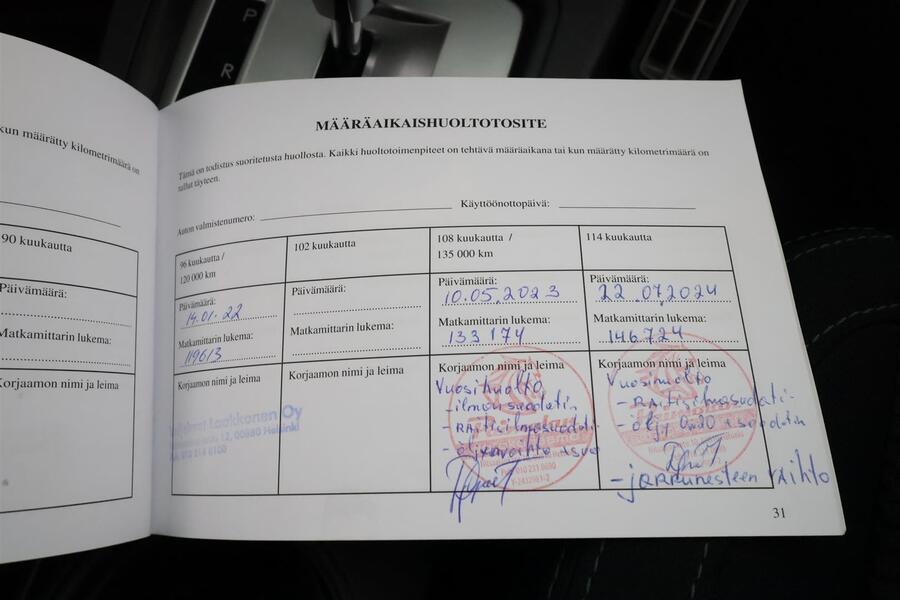 P
R
kun määrätty kilometrimäärä on
90 kuukautta
Päivämäärä:
Matkamittarin lukema:
Korjaamon nimi ja leima
MÄÄRÄAIKAISHUOLTOTOSITE
Tämä on todistus suoritetusta huollosta. Kaikki huoltotoimenpiteet on tehtävä määräaikana tai kun määrätty kilometrimäärä on
tullut täyteen.
Auton valmistenumero: Käyttöönottopäivä:
96 kuukautta /
120 000 km
Päivämäärä:
14.01.22
Matkamittarin lukema:
119613
Korjaamon nimi ja leima
Laakkonen Oy
12, 00880 Helsinki
102 kuukautta
Päivämäärä:
Matkamittarin lukema:
Korjaamon nimi ja leima
108 kuukautta /
135 000 km
Päivämäärä:
10.05.2023
Matkamittarin lukema:
133 174
Korjaamon nimi ja leima
Vuosihuolto
- ilmansuodatin
- Raitisilmasuodati
010 231 8690
114 kuukautta
Päivämäärä:
22.07.2024
Matkamittarin lukema:
146.724
Korjaamon nimi ja leima
Vuosihuolto
- Raitisilmasuodati-
- öljy 0w20 + suodatin
- jarrunesteen vaihto
31